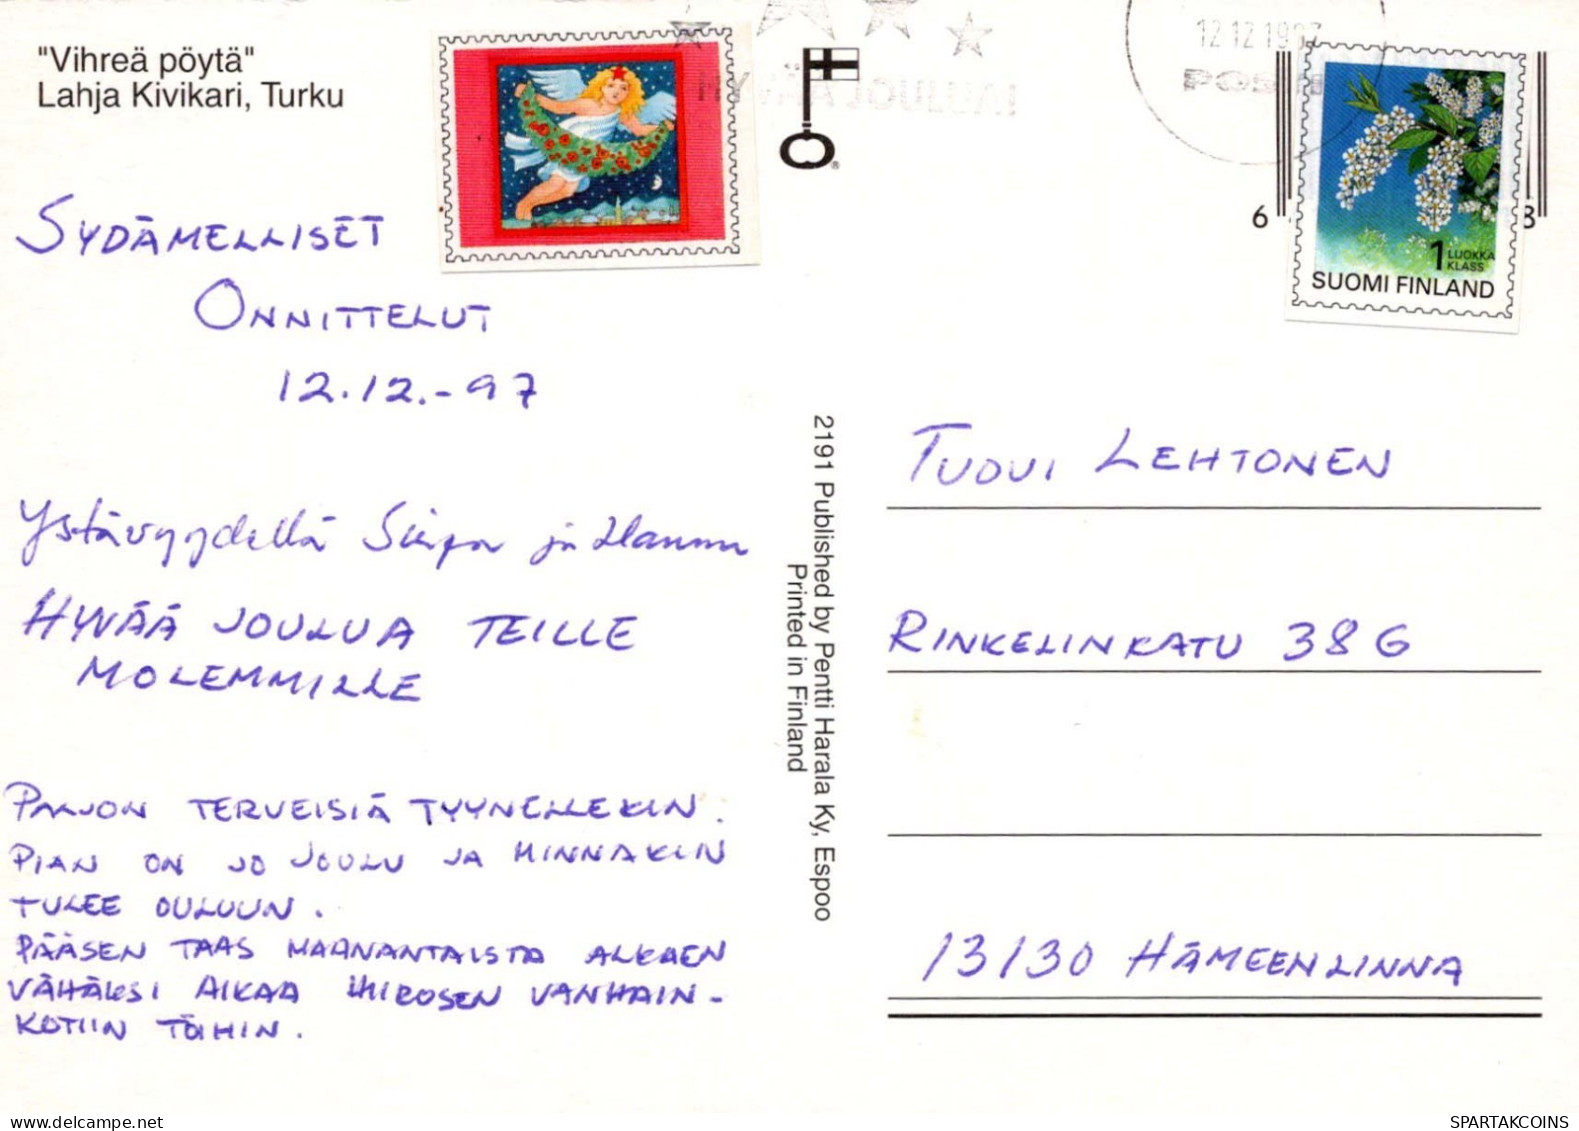 "Vihreä pöytä"
Lahja Kivikari, Turku
12.12.1997
POSTI
HYVÄÄ JOULUA!
SYDÄMELLISET
ONNITTELUT
12.12.-97
Ystävyydellä Sirpa ja Hannu
HYVÄÄ JOULUA TEILLE
MOLEMMILLE
PALJON TERVEISIÄ TYYNELLEKIN.
PIAN ON JO JOULU JA MINNAKIN
TULEE OULUUN.
PÄÄSEN TAAS MAANANTAISTA ALKAEN
VÄHÄKSI AIKAA HIROSEN VANHAIN-
KOTIIN TÖIHIN.
2191 Published by Pentti Harala Ky, Espoo
Printed in Finland
6
8
1 LUOKKA
KLASS
SUOMI FINLAND
TUOVI LEHTONEN
RINKELINKATU 38 G
13130 HÄMEENLINNA
delcampe.net
SPARTAKCOINS